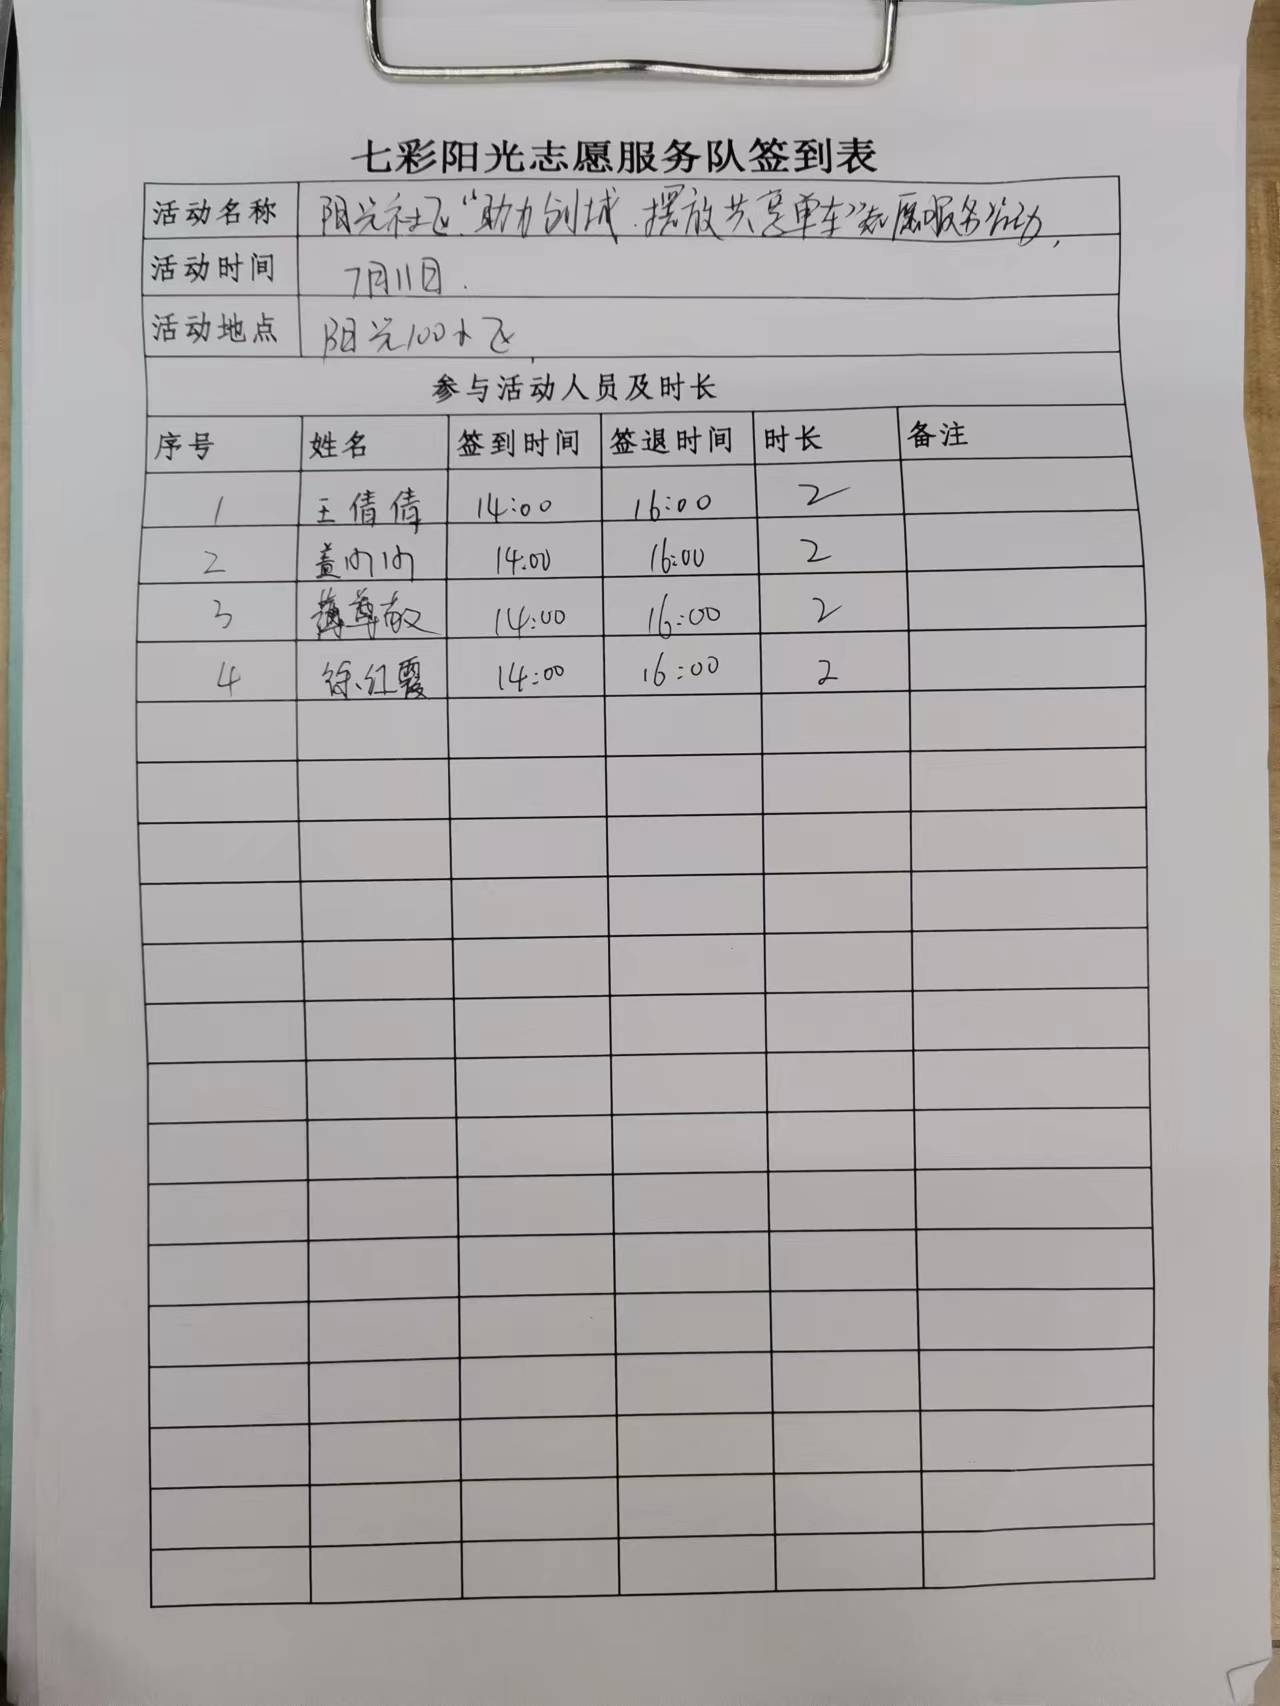 七彩阳光志愿服务队签到表
活动名称 阳光社区“助力创城 摆放共享单车”志愿服务活动
活动时间 7月11日.
活动地点 阳光100小区
参与活动人员及时长
序号 姓名 签到时间 签退时间 时长 备注
1 王倩倩 14:00 16:00 2
2 盖 14:00 16:00 2
3 尊敬 14:00 16:00 2
4 徐红霞 14:00 16:00 2